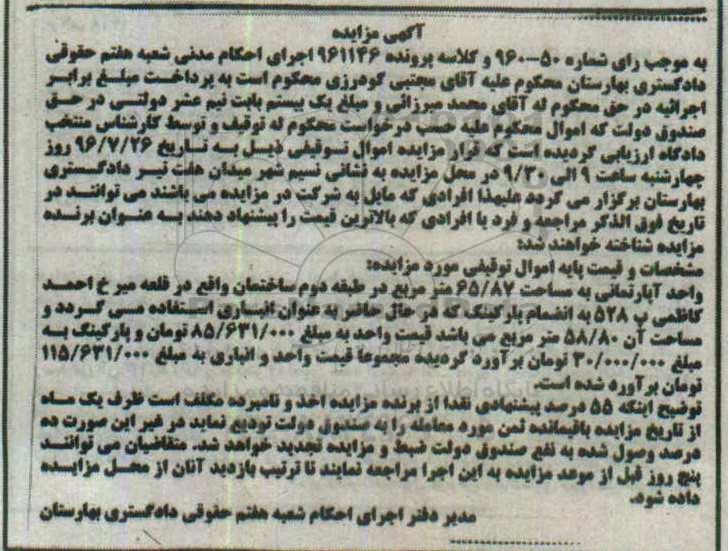 آگهی مزایده
به موجب رای شماره ۵۰-۹۶۰ و کلاسه پرونده ۹۶۱۱۴۶ اجرای احکام مدنی شعبه هفتم حقوقی
دادگستری بهارستان محکوم علیه آقای مجتبی گودرزی محکوم است به پرداخت مبلغ برابر
اجرائیه در حق محکوم له آقای محمد میرزائی و مبلغ یک بیستم بابت نیم عشر دولتی در حق
صندوق دولت که اموال محکوم علیه حسب درخواست محکوم له توقیف و توسط کارشناس منتخب
دادگاه ارزیابی گردیده است که قرار مزایده اموال توقیفی ذیل به تاریخ ۹۶/۷/۲۶ روز
چهارشنبه ساعت ۹ الی ۹/۳۰ در محل مزایده به نشانی نسیم شهر میدان هفت تیر دادگستری
بهارستان برگزار می گردد علیهذا افرادی که مایل به شرکت در مزایده می باشند می توانند در
تاریخ فوق الذکر مراجعه و فرد یا افرادی که بالاترین قیمت را پیشنهاد دهند به عنوان برنده
مزایده شناخته خواهند شد:
مشخصات و قیمت پایه اموال توقیفی مورد مزایده:
واحد آپارتمانی به مساحت ۶۵/۸۷ متر مربع در طبقه دوم ساختمان واقع در قلعه میر خ احمد
کاظمی پ ۵۲۸ به انضمام پارکینگ که در حال حاضر به عنوان انباری استفاده می گردد و
مساحت آن ۵۸/۸۰ متر مربع می باشد قیمت واحد به مبلغ ۸۵/۶۳۱/۰۰۰ تومان و پارکینگ به
مبلغ ۳۰/۰۰۰/۰۰۰ تومان برآورد گردیده مجموعا قیمت واحد و انباری به مبلغ ۱۱۵/۶۳۱/۰۰۰
تومان برآورد شده است.
توضیح اینکه ۵۵ درصد پیشنهادی نقدا از برنده مزایده اخذ و نامبرده مکلف است ظرف یک ماه
از تاریخ مزایده باقیمانده ثمن مورد معامله را به صندوق دولت تودیع نماید در غیر این صورت ده
درصد وصول شده به نفع صندوق دولت ضبط و مزایده تجدید خواهد شد. متقاضیان می توانند
پنج روز قبل از موعد مزایده به این اجرا مراجعه نمایند تا ترتیب بازدید آنان از محل مزایده
داده شود.
مدیر دفتر اجرای احکام شعبه هفتم حقوقی دادگستری بهارستان